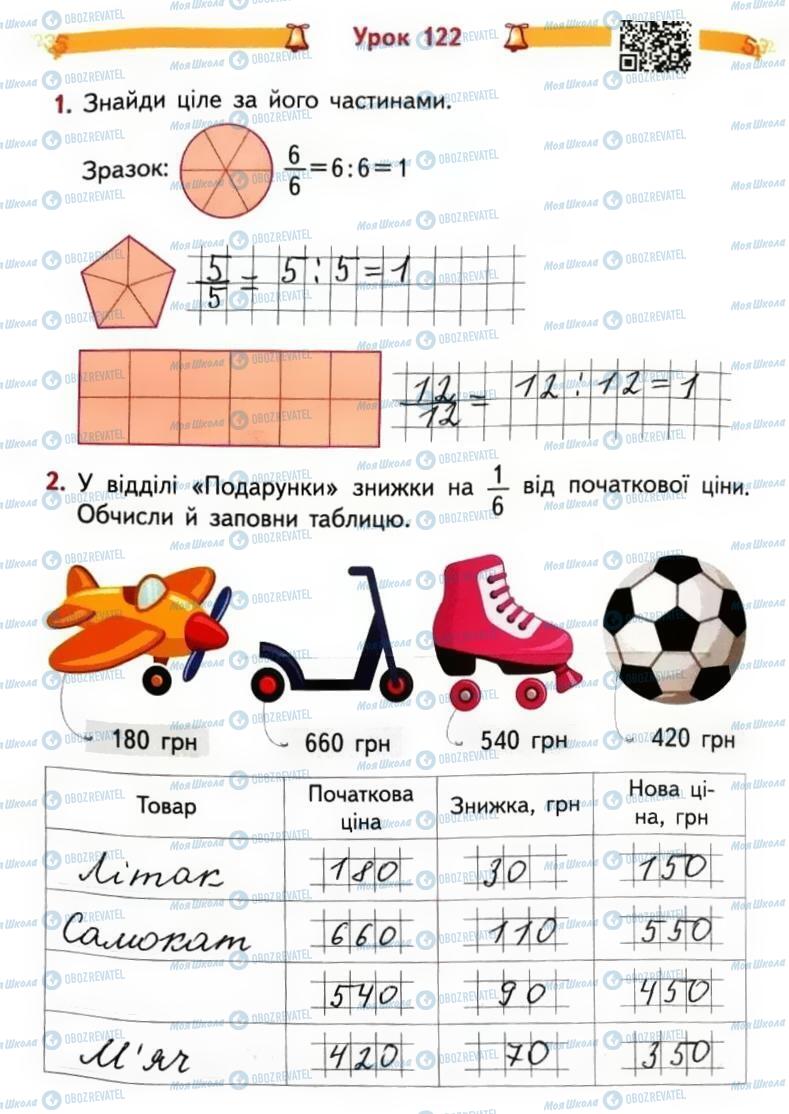 Урок 122
1. Знайди ціле за його частинами.
Зразок: 6/6 = 6 : 6 = 1
5/5 = 5 : 5 = 1
12/12 = 12 : 12 = 1
2. У відділі «Подарунки» знижки на 1/6 від початкової ціни.
Обчисли й заповни таблицю.
180 грн 660 грн 540 грн 420 грн
Товар Початкова ціна Знижка, грн Нова ці-на, грн
Літак 180 30 150
Самокат 660 110 550
540 90 450
М'яч 420 70 350
МояШкола OBOZREVATEL